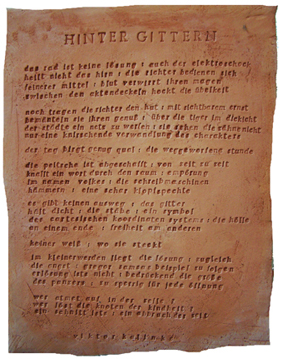 HINTER GITTERN
das rad ist keine lösung ; auch der elektroschock
heilt nicht das hirn ; die richter bedienen sich
feinerer mittel ; blut verwirrt ihren magen
zwischen den aktendeckeln hockt die übelkeit
noch tragen die richter den hut ; mit sichtbarem ernst
bemänteln sie ihren genuß ; über die tiger im dickicht
der städte ein netz zu werfen ; sie sehen die zähne nicht
nur eine kafkaische verwendung des charakters
der tag birgt genug qual ; die weggeworfene stunde
die peitsche ist abgeschafft ; von zeit zu zeit
knallt ein wort durch den raum ; empörung
im namen volkes ; die schreibmaschinen
hämmern ; eine scher
es gibt keinen ausweg ; das gitter
hält dicht ; die stäbe ; ein symbol
des cartesischen koordinaten systems ; die hölle
an einem ende ; freiheit am anderen
keiner weiß ; wo sie steckt
im kleinerwerden liegt die lösung ; zugleich
die angst ; gregor samsas beispiel zu folgen
erlösung ists nicht ; bedrückend die größe
des panzers ; zu sperrig für jede öffnung
wer atmet auf in der zelle ;
wer löst die knoten der kindheit ?
ein schnitt ; ein abbruch der zeit
viktor kalinke